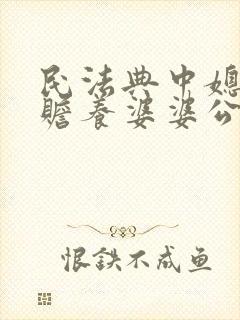 民法典中媳
赡养婆婆公
恨铁不成鱼